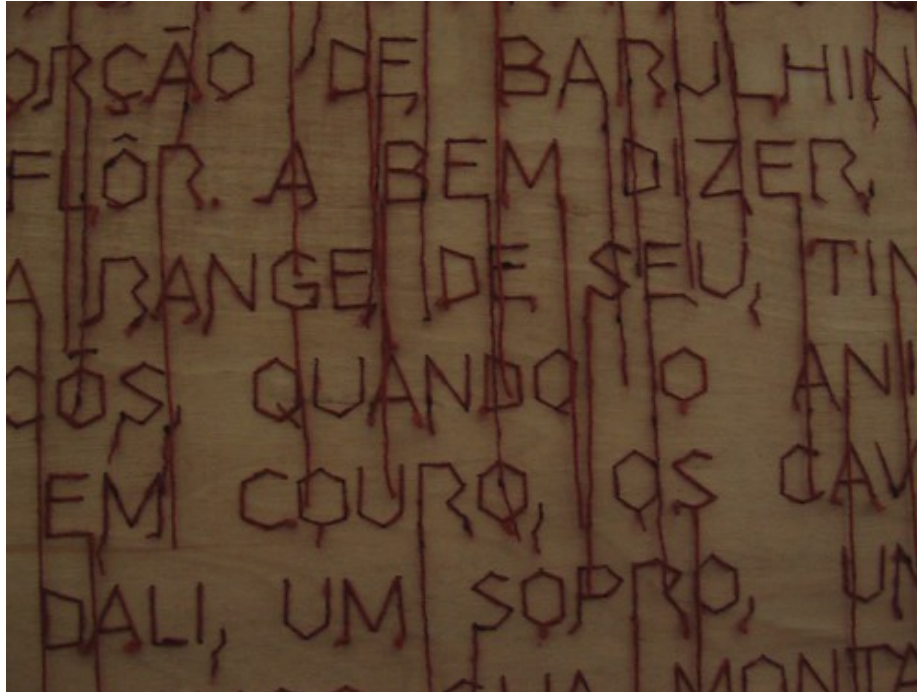 ORÇÃO DE BARULHIN
FLÔR. A BEM DIZER,
A RANGE, DE SEU, TIN
CÕS, QUANDO O ANI
EM COURO, OS CAV
DALI, UM SOPRO, UM
MONTA